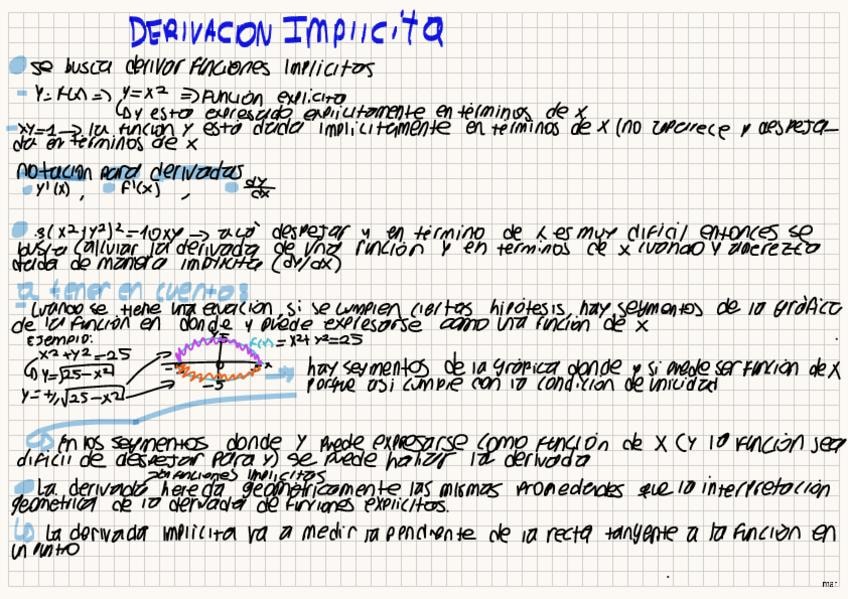 DERIVACION IMPlICITA
se busca derivar funciones Implicitas
- Y=F(x) => Y=x² => Función explicita
↳ Y esta expresado explicitamente en términos de x
- xy=1 -> la función y está dada implicitamente en terminos de x (no aparece y despeja-
da en terminos de x
notación para derivadas
y'(x) , F'(x) , dy/dx
3(x²+y²)²=100xy -> acá despejar y en término de x es muy difícil entonces se
busca calcular la derivada de una función y en terminos de x cuando y aparezca
dada de manera implicita (dy/dx)
a tener en cuenta:
- cuando se tiene una ecuación, si se cumplen ciertas hipótesis, hay segmentos de la gráfica
de la función en donde y puede expresarse como una función de x
Ejemplo:
x²+y²=25
↳ y=√25-x²
y=+/-√25-x²
5
F(x) = x²+y²=25
x
-5
hay segmentos de la gráfica donde y si puede ser función de x
porque asi cumple con la condición de unicidad
En los segmentos donde y puede expresarse como función de x (y la función sea
dificil de despejar para y) se puede hallar la derivada
de funciones implicitas
La derivada hereda geometricamente las mismas propiedades que la interpretación
geometrica de la derivada de funciones explicitas.
↳ La derivada implicita va a medir la pendiente de la recta tangente a la función en
un punto
mar